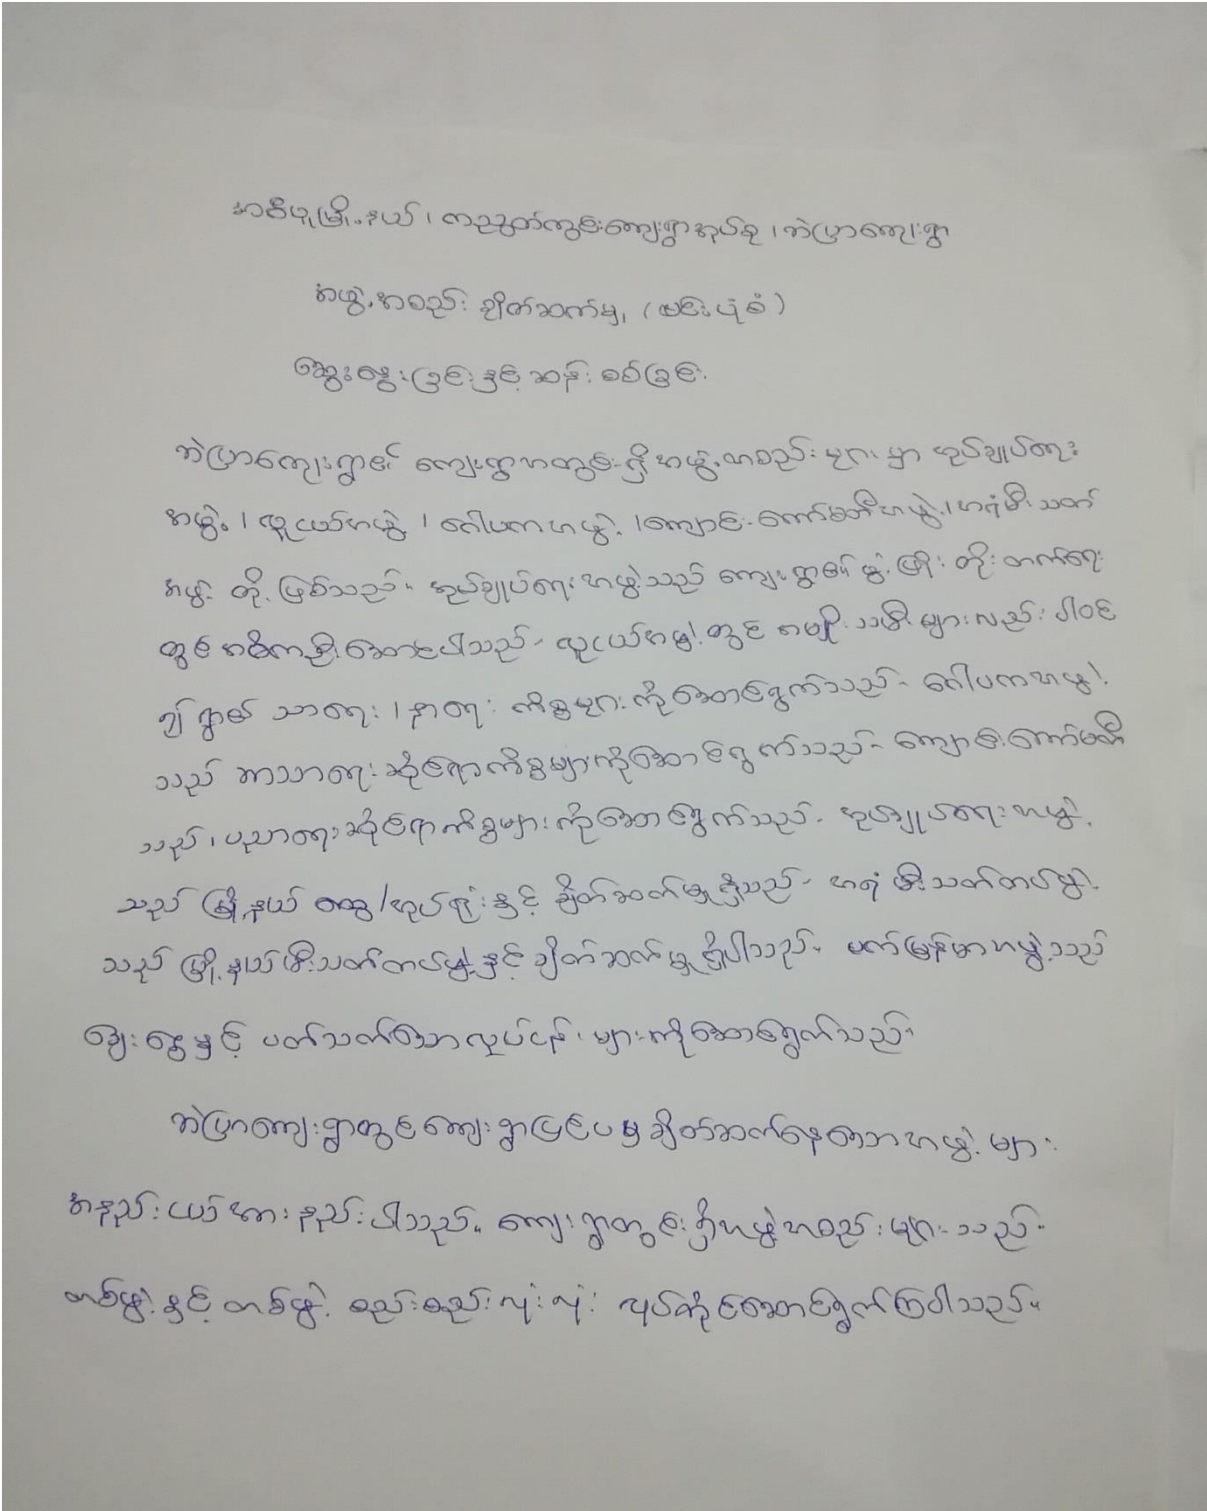 အစီဖူမြို့နယ်၊ ကညွတ်ကွင်းကျေးရွာအုပ်စု၊ ဘဲပြာကျေးရွာ
အဖွဲ့အစည်း ချိတ်ဆက်မှု (ဗင်းပုံစံ)
ဆွေးနွေးခြင်းနှင့် ဆန်းစစ်ခြင်း
ဘဲပြာကျေးရွာ၏ ကျေးရွာအတွင်းရှိ အဖွဲ့အစည်းများမှာ အုပ်ချုပ်ရေး
အဖွဲ့၊ လူငယ်အဖွဲ့၊ ဂေါပကအဖွဲ့၊ ကျောင်းကော်မတီအဖွဲ့၊ အရံမီးသတ်
အဖွဲ့ တို့ ဖြစ်သည်။ အုပ်ချုပ်ရေးအဖွဲ့သည် ကျေးရွာ၏ ဖွံ့ဖြိုးတိုးတက်ရေး
တွင် အဓိကဦးဆောင်ပါသည်။ လူငယ်အဖွဲ့တွင် အမျိုးသမီးများလည်း ပါဝင်
၍ ရွာ၏ သာရေး၊ နာရေး ကိစ္စများကိုဆောင်ရွက်သည်။ ဂေါပကအဖွဲ့
သည် ဘာသာရေးဆိုင်ရာကိစ္စများကိုဆောင်ရွက်သည်။ ကျောင်းကော်မတီ
သည်၊ ပညာရေးဆိုင်ရာကိစ္စများကိုဆောင်ရွက်သည်။ အုပ်ချုပ်ရေးအဖွဲ့
သည် မြို့နယ် ထွေ/အုပ်ရုံးနှင့် ချိတ်ဆက်မှုရှိသည်။ အရံမီးသတ်တပ်ဖွဲ့
သည် မြို့နယ်မီးသတ်တပ်ဖွဲ့နှင့် ချိတ်ဆက်မှုရှိပါသည်။ မက်မြန်မာအဖွဲ့သည်
ချေးငွေနှင့် ပတ်သက်သောလုပ်ငန်းများကိုဆောင်ရွက်သည်။
ဘဲပြာကျေးရွာတွင်ကျေးရွာပြင်ပမှ ချိတ်ဆက်နေသောအဖွဲ့များ
အနည်းငယ်အားနည်းပါသည်။ ကျေးရွာတွင်းရှိအဖွဲ့အစည်းများသည်
တစ်ဖွဲ့နှင့်တစ်ဖွဲ့ စည်းစည်းလုံးလုံး လုပ်ကိုင်ဆောင်ရွက်ကြပါသည်။